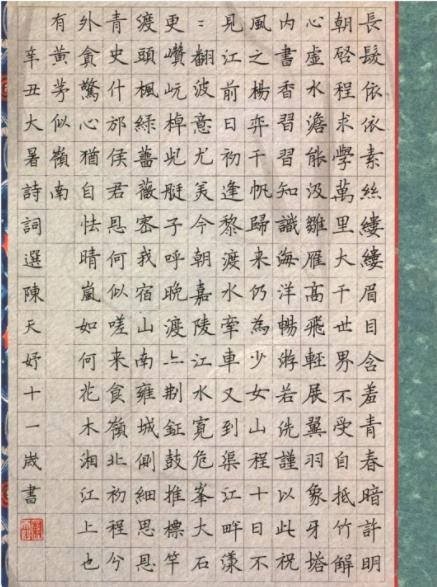 長髮依依素絲縷縷眉目含羞青春暗許明
朝啓程求學萬里大千世界不受自抵竹解
心虛水澹能汲雛雁高飛輕展翼羽象牙塔
內書香習習知識海洋暢游若侁謹以此祝
風之楊弈千帆歸来仍為少女山程十日不
見江前日初逢黎渡水牽車又到渠江畔漾
〻翻波意尤美今朝嘉陵江水寬危峯大石
更巑岏棹兠艇子呼晚渡亠荆鉦鼓推標竿
渡頭楓綠薔薇密我宿山南雍城側細思恩
青史什邡侯君恩何似嗟来食嶺北初程兮
外貪驚心猶自怯晴嵐如何花木湘江上也
有黄茅似嶺南
辛丑大暑詩詞選陳天妤十一歲書